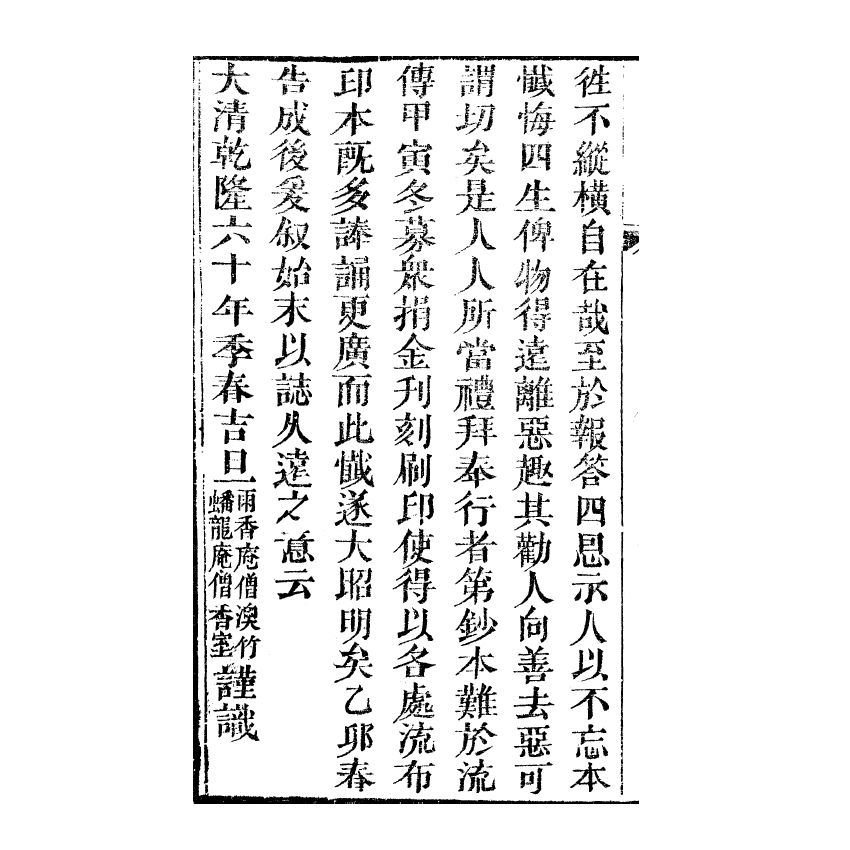 徃不縱橫自在哉至於報答四恩示人以不忘本
懺悔四生俾物得遠離惡趣其勸人向善去惡可
謂切矣是人人所當禮拜奉行者第鈔本難於流
傳甲寅冬募衆捐金刋刻刷印使得以各處流布
印本旣多諫誦更廣而此懺遂大昭明矣乙卯春
告成後爰叙始末以誌久遠之意云
大清乾隆六十年季春吉旦雨香庵僧澳竹
蟠龍庵僧香室謹識